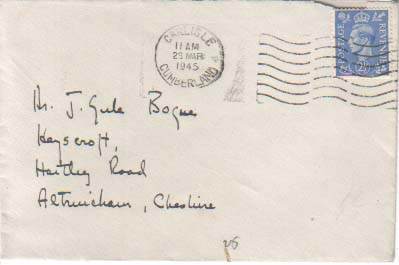 CARLISLE
11 AM
23 MAR
1945
CUMBERLAND
POSTAGE REVENUE
Mr. J. Gule Bogue
Heyscroft,
Hartley Road
Altrincham, Cheshire